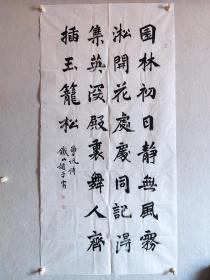 園林初日靜無風霧
淞開花處處同記得
集英深殿裏舞人齊
插玉籠松
曾鞏詩